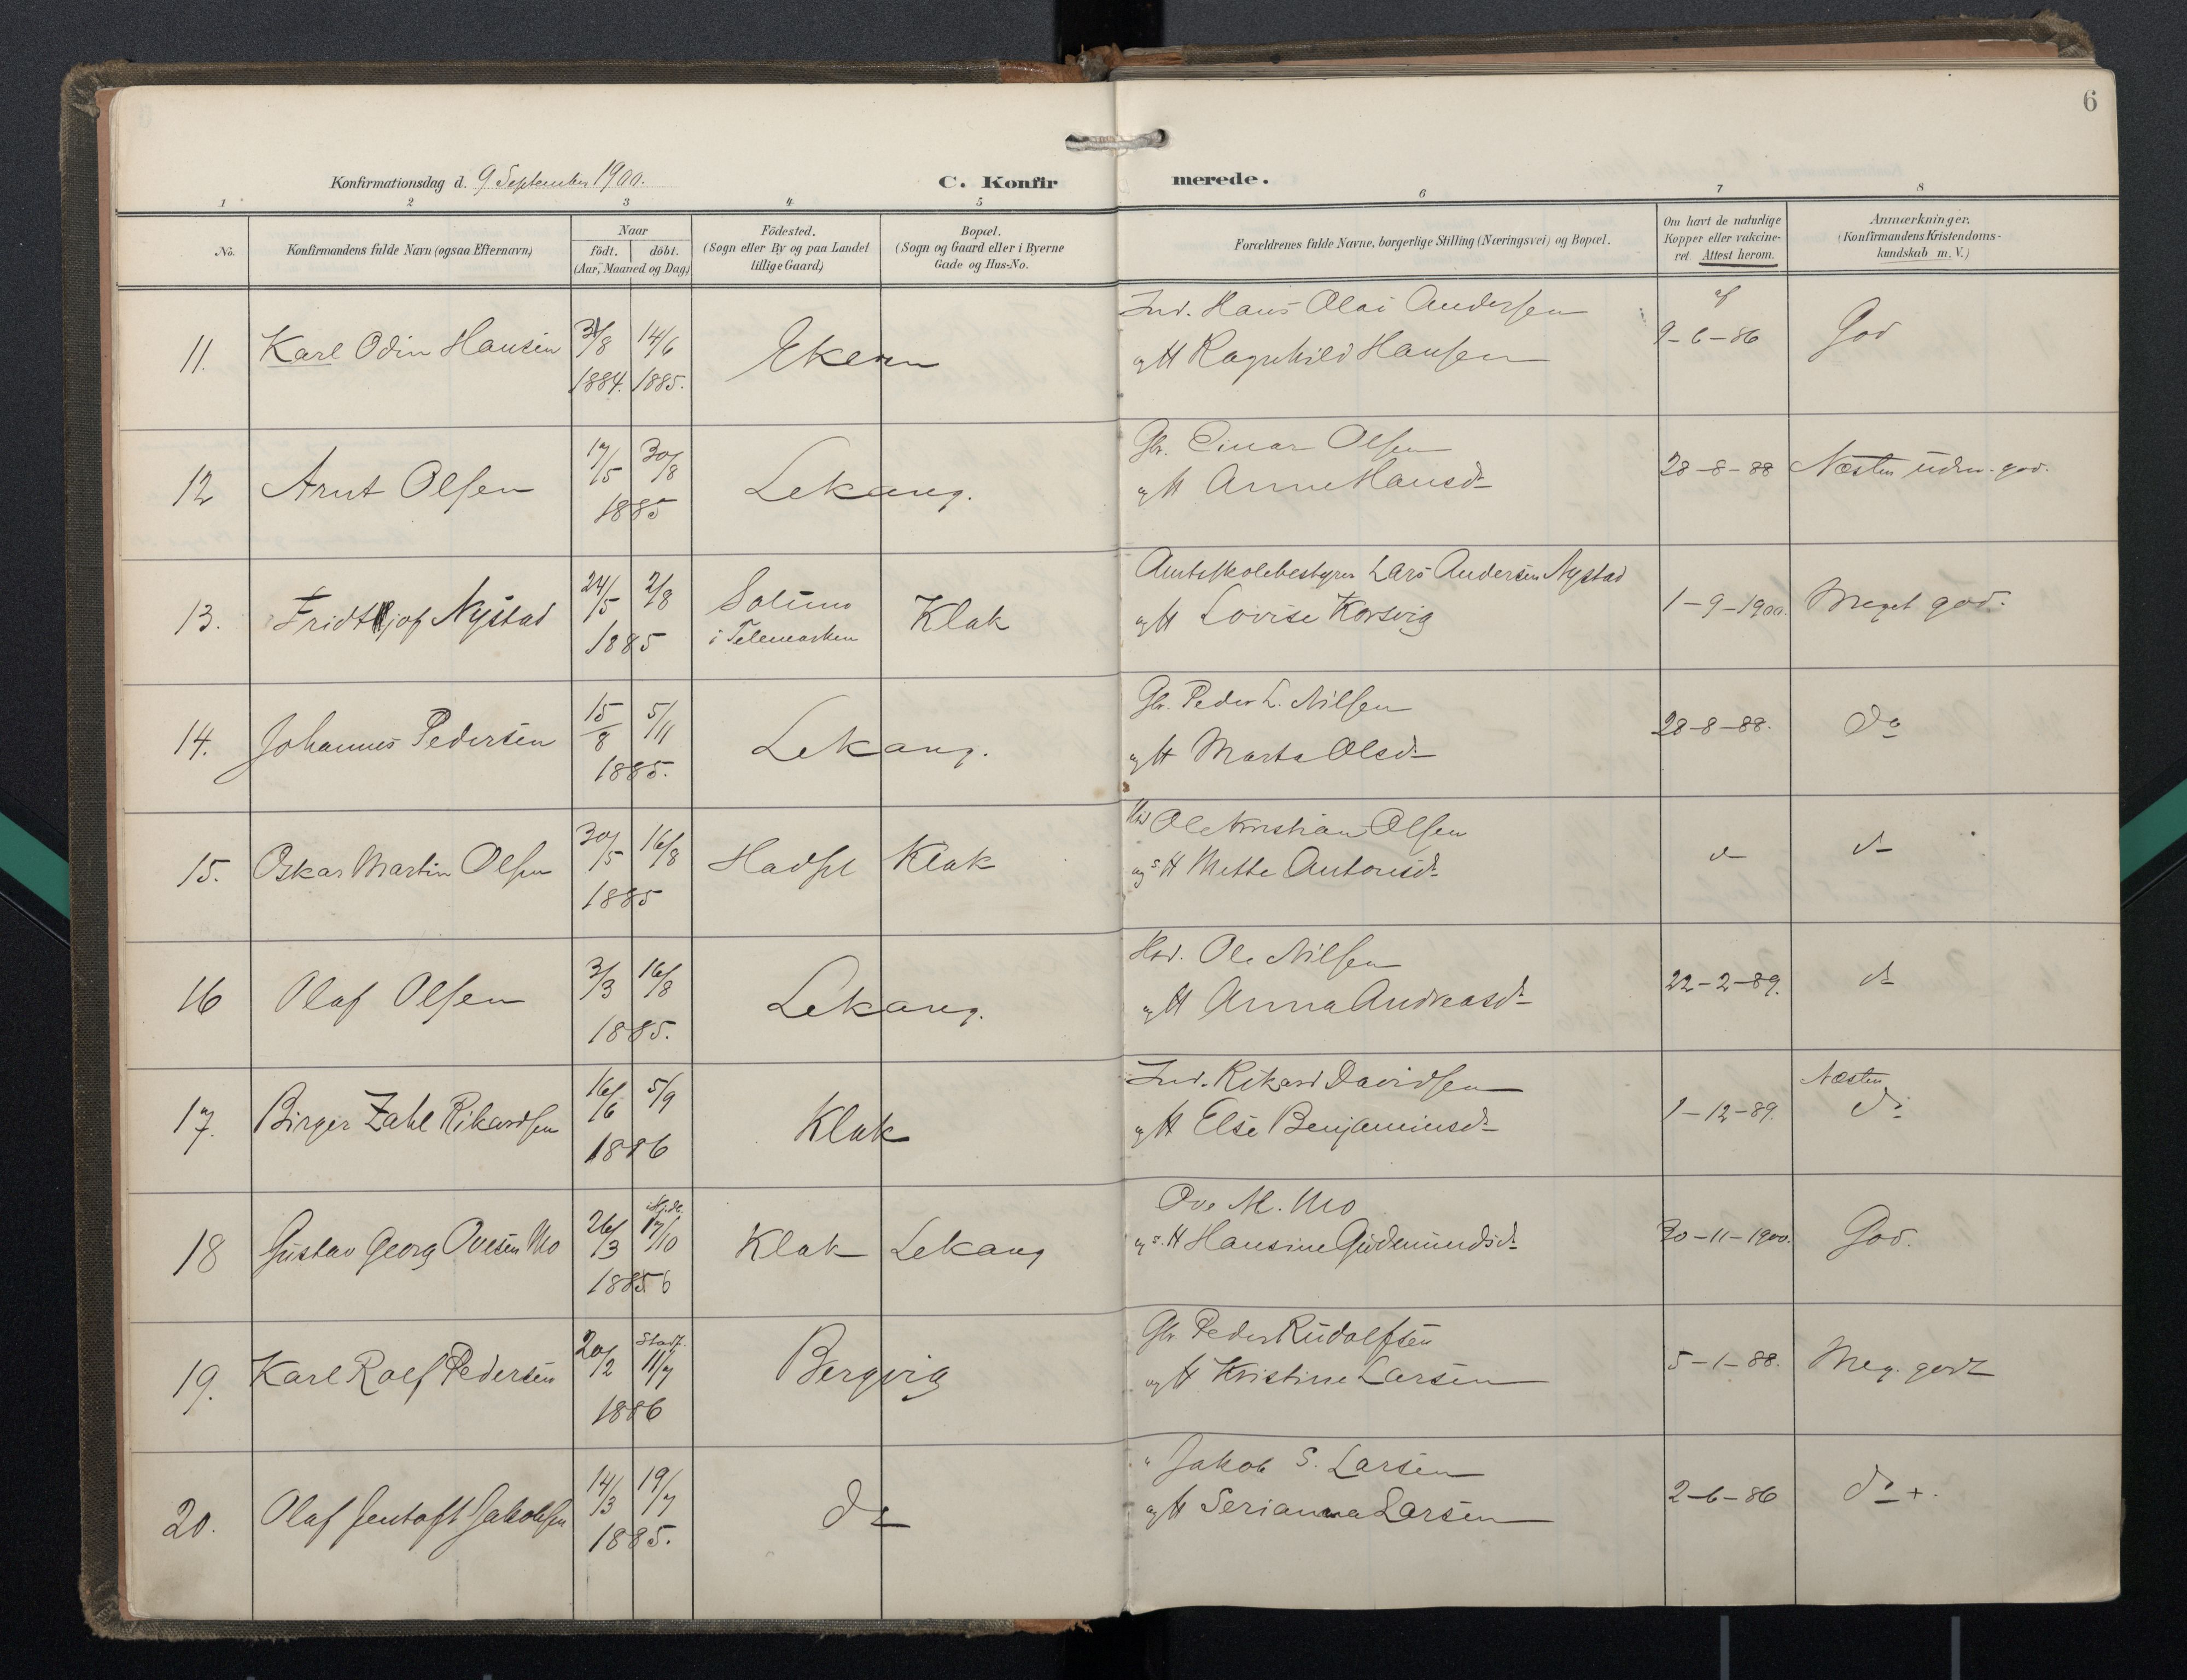 6
Konfirmationsdag d. 9 September 1900.
C. Konfirmerede.
1 2 3 4 5 6 7 8
No.
Konfirmandens fulde Navn (ogsaa Efternavn)
Naar
födt. döbt.
(Aar, Maaned og Dag)
Födested.
(Sogn eller By og paa Landet
tillige Gaard)
Bopæl.
(Sogn og Gaard eller i Byerne
Gade og Hus-No.
Forældrenes fulde Navne, borgerlige Stilling (Næringsvei) og Bopæl.
Om havt de naturlige
Kopper eller vakcine-
ret. Attest herom.
Anmærkninger.
(Konfirmandens Kristendoms-
kundskab m. V.)
11. Karl Odin Hansen 31/8 14/6
1884. 1885.
Ekern
Ind. Hans Olai Andersen
og H Ragnhild Hansen
af
9-6-86 God
12 Arnt Olsen 17/5 30/8
1885
Lekang.
Gbr. Einar Olsen
og H Anne Hansdr
28-8-88 Næsten udm. god.
13. Fridtjof Nystad 24/5 2/8
1885
Solum
i Telemarken
Klak
Amtsskolebestyrer Lars Andersen Nystad
og H Lovise Korsvig
1-9-1900. Meget god.
14. Johannes Pedersen 15/8 5/11
1885.
Lekang.
Gbr. Peder L. Nilsen
og H Marta Olsdr
28-8-88. do
15. Oskar Martin Olsen 30/5 16/8
1885
Hadsel Klak
Ole Kristian Olsen
og s H Mette Antonisdr
do do
16 Olaf Olsen 3/3 16/8
1885.
Lekang.
Hsd. Ole Nilsen
og H Anna Andreasdr
22-2-89. do
17. Birger Zahl Rikardsen 16/6 5/9
1886
Klak
Ind. Rikard Davidsen
og H Else Benjaminsdr
1-12-89.
Næsten
do
18 Gustav Georg Ovesen Mo 26/3 17/10
18856
Klak Lekang
Ove M. Mo
og s. H Hansine Gudmundsdr
30-11-1900. God.
19. Karl Roef Pedersen 20/2 11/7
1886
Bergvig
Gbr Peder Rudolfsen
og H Kristine Larsen
5-1-88. Meg. godt
20. Olaf Jentoft Jakobsen 14/3 19/7
1885.
do
" Jakob S. Larsen
og H Serianna Larsen
2-6-86 do +.